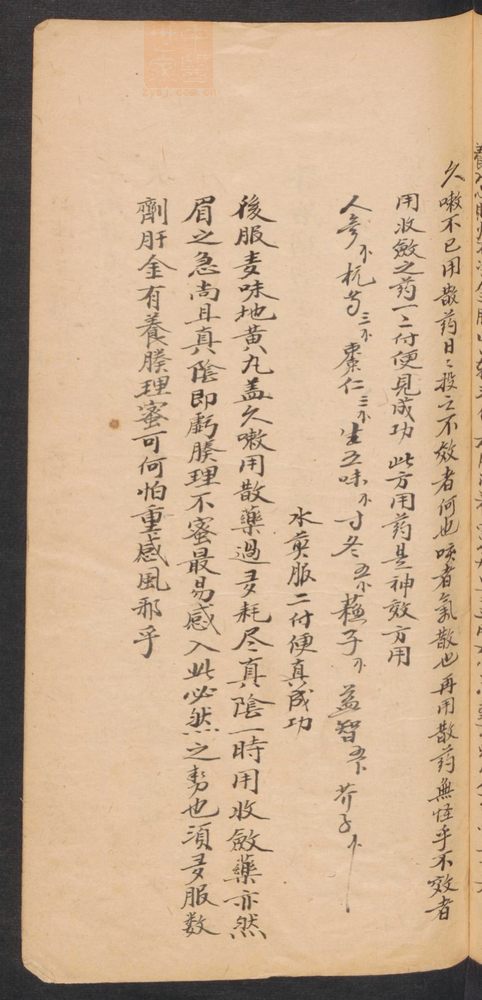 久嗽不已用散药日々投之不效者何也咳者氣散也再用散药無怪乎不效者
用收斂之药一二付便見成功 此方用药是神效方用
人參 杭芍三 棗仁三 生五味 寸冬 蘇子 益智 芥子
水煎服二付便真成功
後服麦味地黄九盖久嗽用散藥過多耗尽真陰一時用收斂藥亦然
眉之急尚且真陰即虧腠理不蜜最易感入此必然之势也須多服数
劑肝金有養腠理蜜可何怕重感風邪乎